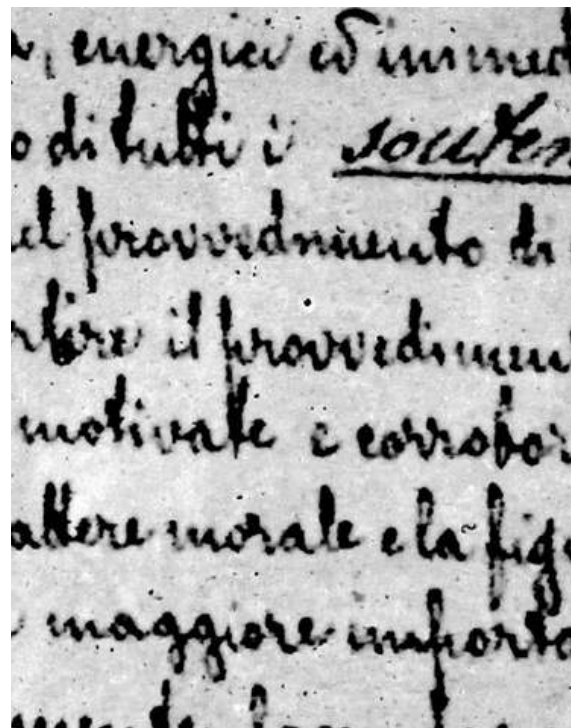 , energici ed immed
o di tutti i souten
el provvedimento di
rtire il provvedimen
motivate e corrobor
attere morale e la fig
maggiore importa